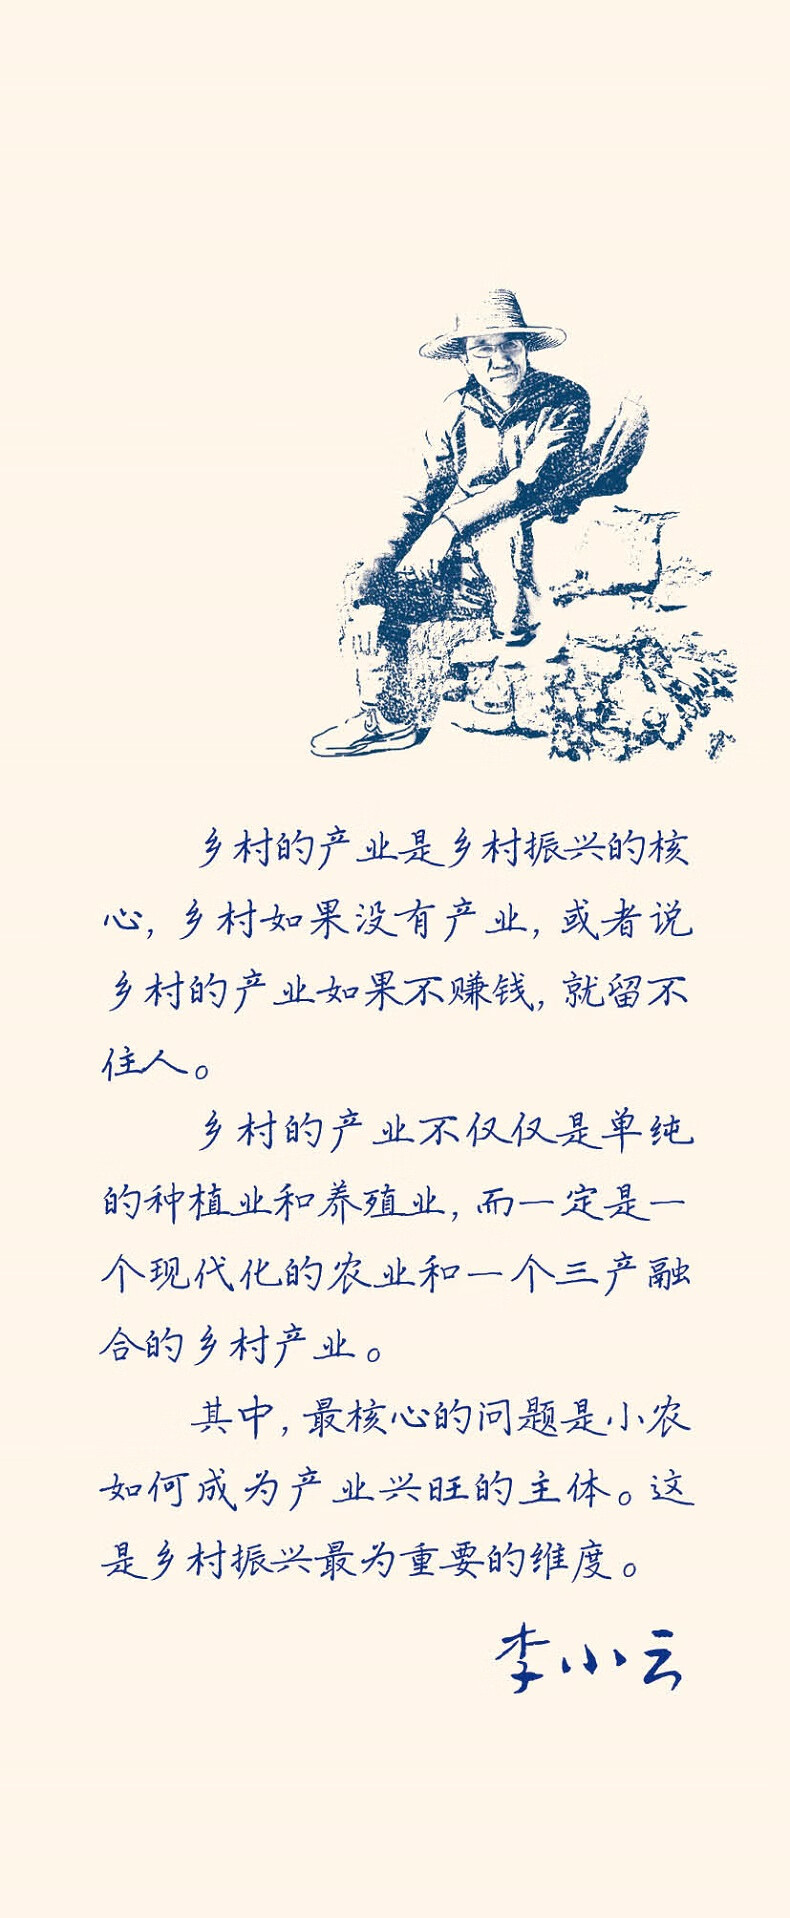 乡村的产业是乡村振兴的核
心,乡村如果没有产业,或者说
乡村的产业如果不赚钱,就留不
住人。
乡村的产业不仅仅是单纯
的种植业和养殖业,而一定是一
个现代化的农业和一个三产融
合的乡村产业。
其中,最核心的问题是小农
如何成为产业兴旺的主体。这
是乡村振兴最为重要的维度。
李小云